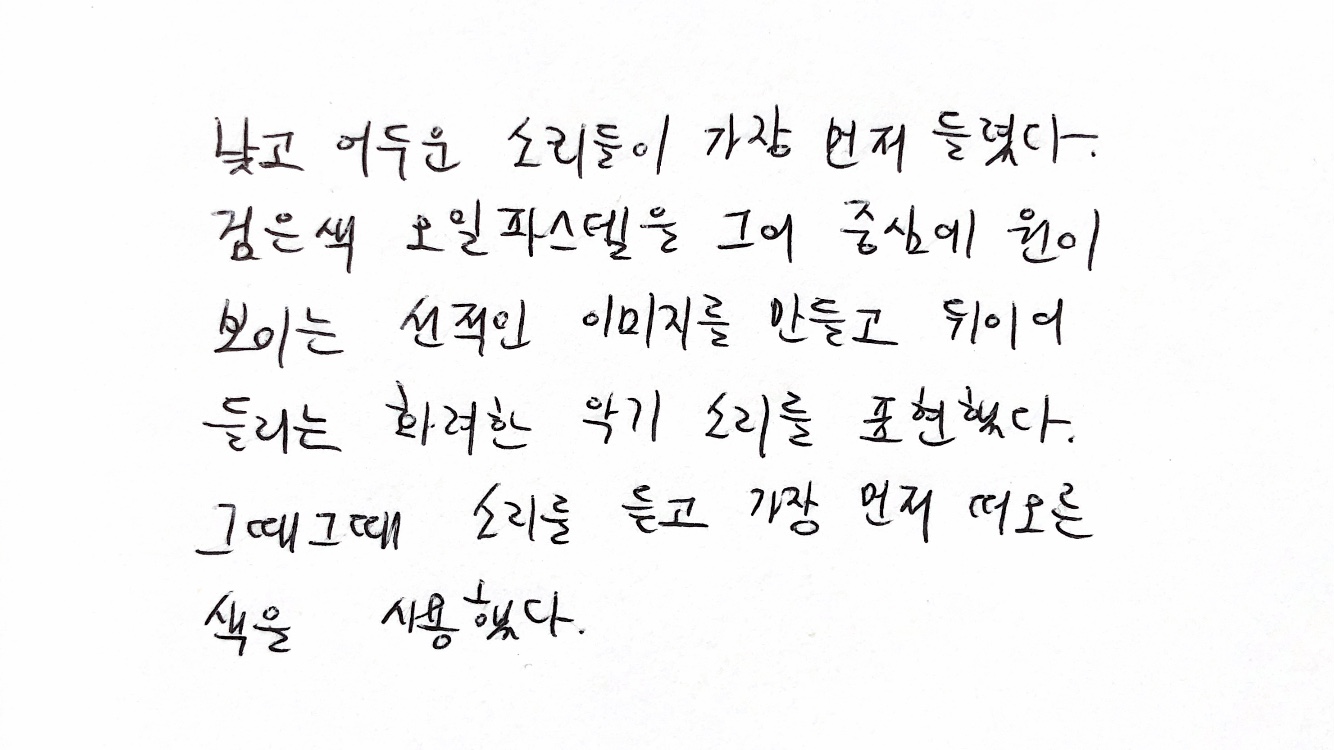 낮고 어두운 소리들이 가장 먼저 들렸다.
검은색 오일파스텔을 그어 중심에 원이
보이는 선적인 이미지를 만들고 뒤이어
들리는 화려한 악기 소리를 표현했다.
그때그때 소리를 듣고 가장 먼저 떠오른
색을 사용했다.